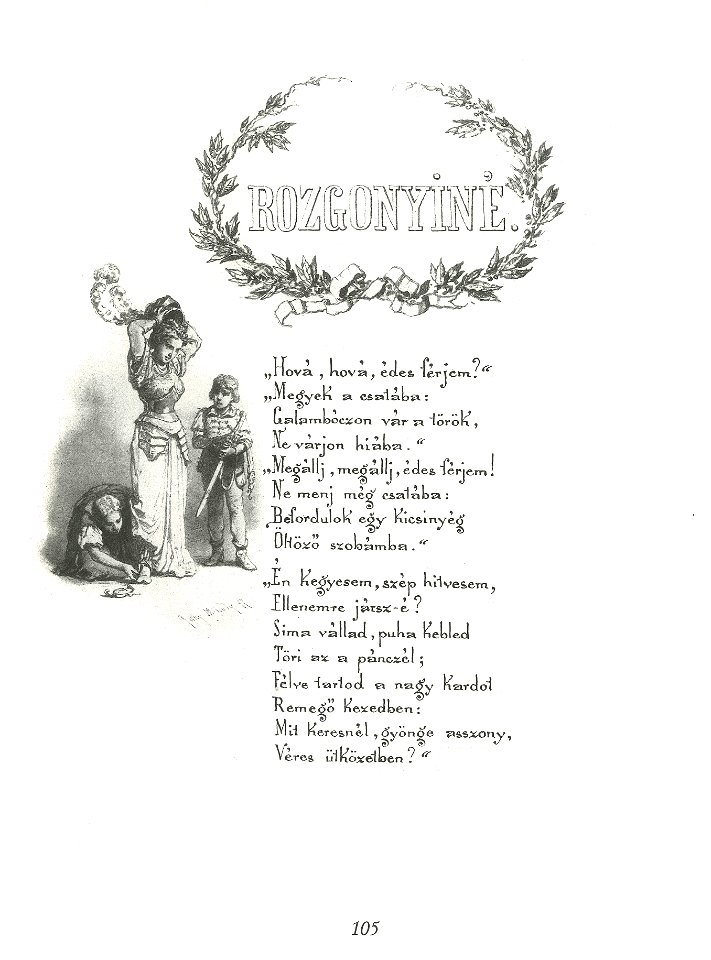 ROZGONYINÉ.
„Hová, hová, édes férjem?“
„Megyek a csatába:
Galambóczon vár a török,
Ne várjon hiába.“
„Megállj, megállj, édes férjem!
Ne menj még csatába:
Befordulok egy kicsinyég
Öltöző szobámba.“
„Én kegyesem, szép hitvesem,
Ellenemre jársz-é?
Sima vállad, puha kebled
Töri az a pánczél;
Félve tartod a nagy kardot
Remegő kezedben:
Mit keresnél, gyönge asszony,
Véres ütközetben?“
105